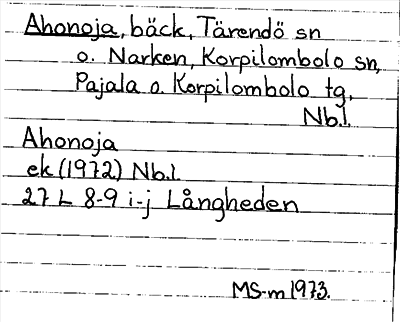 Ahonoja, bäck, Tärendö sn
o. Narken, Korpilombolo sn,
Pajala o. Korpilombolo tg,
Nb.l.
Ahonoja
ek (1972) Nb.l.
27 L 8-9 i-j Långheden
MS-m 1973.